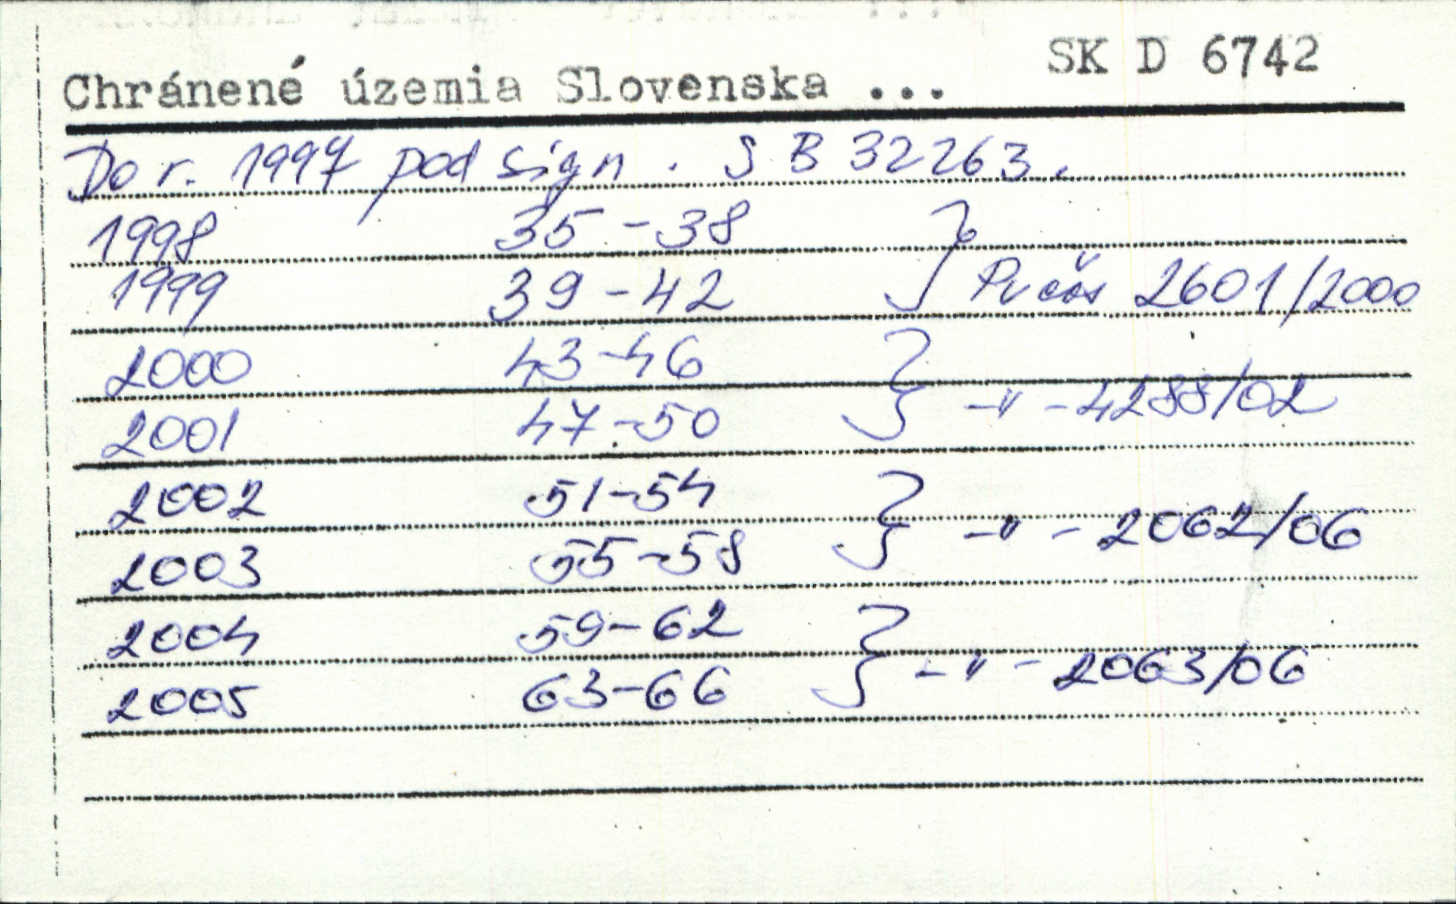 SK D 6742
Chránené územia Slovenska ...
Do r. 1997 pod sign. S B 32263.
1998 35-38
1999 39-42 } Pr čas 2601/2000
2000 43-46
2001 47-50 } -"- 4288/02
2002 51-54
2003 55-58 } -"- 2062/06
2004 59-62
2005 63-66 } -"- 2063/06